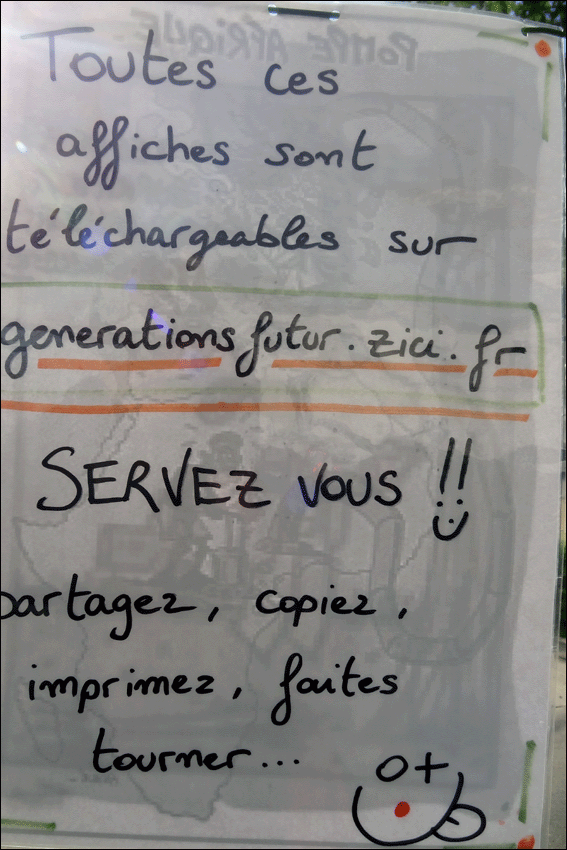 Toutes ces
affiches sont
téléchargeables sur
generationsfutur.zici.fr
SERVEZ VOUS !!
partagez, copiez,
imprimez, faites
tourner...